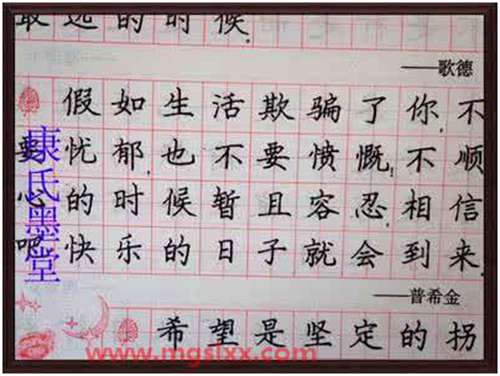 最远的时候.
——歌德
假如生活欺骗了你,不
要忧郁,也不要愤慨!不顺
心的时候暂且容忍,相信
吧,快乐的日子就会到来.
——普希金
希望是坚定的拐
康氏墨堂
www.mgslxx.com